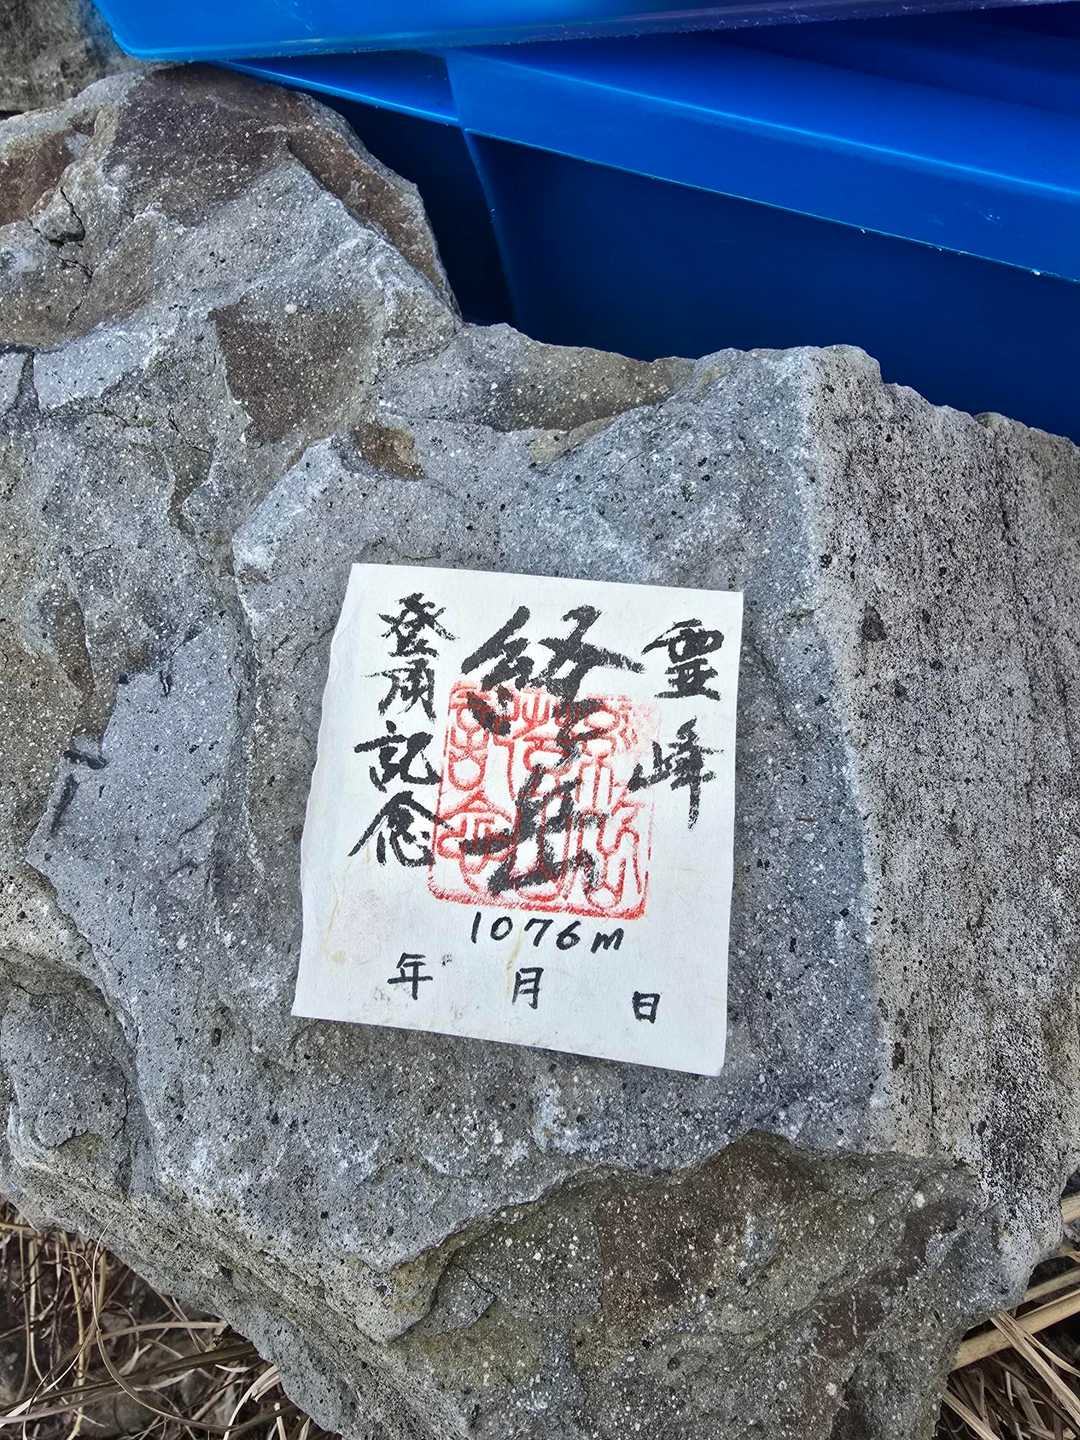 霊峰
経ヶ岳
登頂記念
1076m
年 月 日